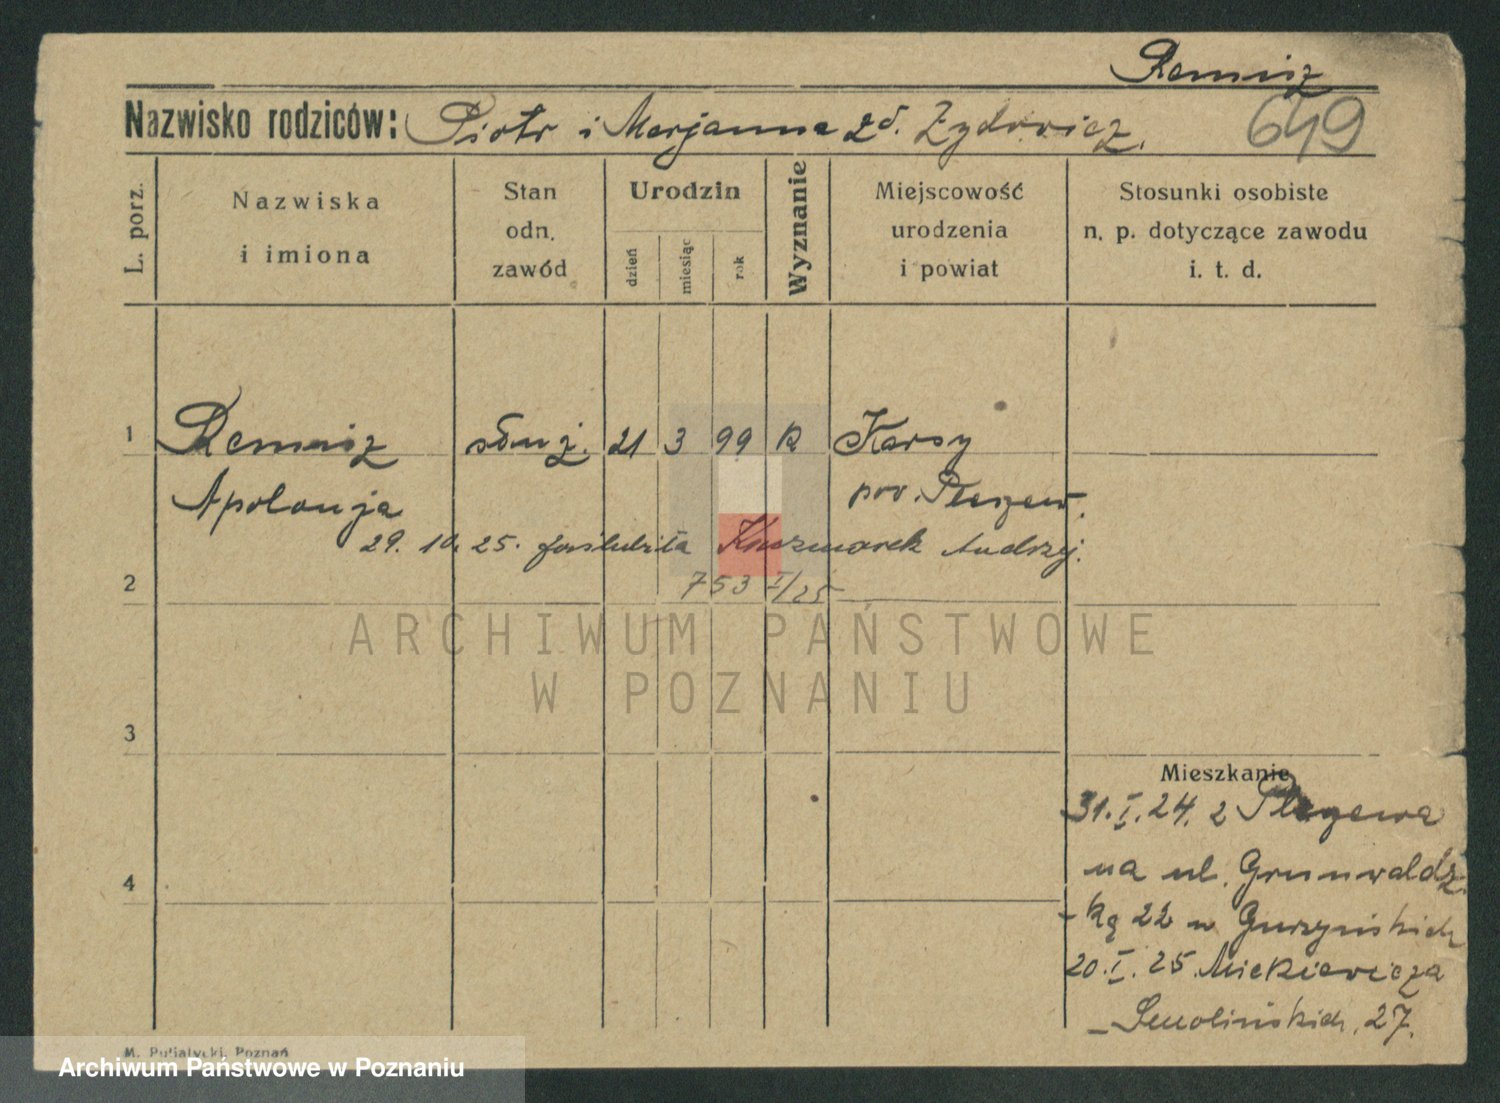 Remisz
Nazwisko rodziców: Piotr i Marjanna zd. Żydowicz.
649
L. porz.
Nazwiska i imiona
Stan odn. zawód
Urodzin
dzień
miesiąc
rok
Wyznanie
Miejscowość urodzenia i powiat
Stosunki osobiste n. p. dotyczące zawodu i. t. d.
1 Remisz służ. 21 3 99 k Karsy
Apolonja pow. Pleszew.
29. 10. 25. poślubiła Kaczmarek Andrzej.
2 753 I/25
ARCHIWUM PAŃSTWOWE
W POZNANIU
3
Mieszkanie
31. I. 24. z Pleszewa
4 na ul. Grunwaldz
-ką 22 u
20. I. 25. Mickiewicza
– Smolińskich, 27.
M. Putiatycki, Poznań
Archiwum Państwowe w Poznaniu